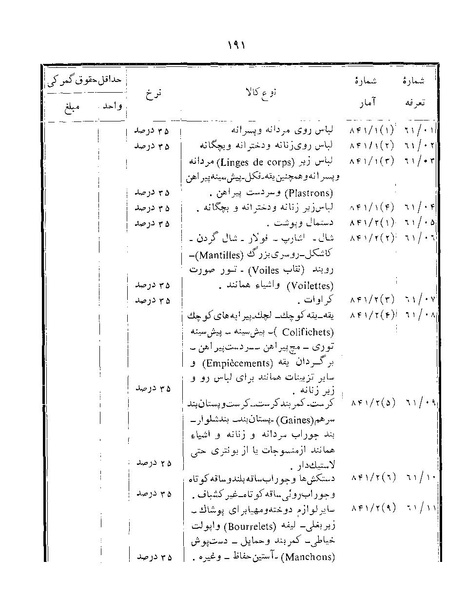 ۱۹۱
شمارهٔ تعرفه شمارهٔ آمار نوع کالا نرخ حداقل حقوق گمرکی واحد مبلغ
۶۱/۰۱ ۸۴۱/۱(۱) لباس روی مردانه وپسرانه ۳۵ درصد
۶۱/۰۲ ۸۴۱/۱(۲) لباس روی زنانه ودخترانه وبچگانه ۳۵ درصد
۶۱/۰۳ ۸۴۱/۱(۳) لباس زیر (Linges de corps) مردانه
وپسرانه وهمچنین یقه-فکل-پیش سینه پیراهن
(Plastrons) وسردست پیراهن . ۳۵ درصد
۶۱/۰۴ ۸۴۱/۱(۴) لباس زیر زنانه ودخترانه و بچگانه . ۳۵ درصد
۶۱/۰۵ ۸۴۱/۲(۱) دستمال وپوشت . ۳۵ درصد
۶۱/۰۶ ۸۴۱/۲(۲) شال - اشارپ - فولار - شال گردن -
کاشکل-روسری بزرگ (Mantilles)-
روبند (نقاب Voiles) - تور صورت
(Voilettes) واشیاء همانند . ۳۵ درصد
۶۱/۰۷ ۸۴۱/۲(۳) کراوات . ۳۵ درصد
۶۱/۰۸ ۸۴۱/۲(۴) یقه-یقه کوچك - لچك-پیرایه های کوچك
(Colifichets) - پیش سینه - پیش سینه
توری - مچ پیراهن - سردست پیراهن -
برگردان یقه (Empiècements) و
سایر تزیینات همانند برای لباس رو و
زیر زنانه . ۳۵ درصد
۶۱/۰۹ ۸۴۱/۲(۵) کرست-کمربند کرست-کرست وپستان بند
سرهم (Gaines)-پستان بند- بندشلوار-
بند جوراب مردانه و زنانه و اشیاء
همانند ازمنسوجات یا از بونتری حتی
لاستیك دار . ۲۵ درصد
۶۱/۱۰ ۸۴۱/۲(۶) دستکش ها وجوراب ساقه بلند وساقه کوتاه
وجوراب روئی ساقه کوتاه-غیر کشباف . ۳۵ درصد
۶۱/۱۱ ۸۴۱/۲(۹) سایرلوازم دوخته ومهیا برای پوشاك -
زیربغلی- لیفه (Bourrelets) واپولت
خیاطی- کمربند وحمایل - دست پوش
(Manchons)-آستین حفاظ - وغیره . ۳۵ درصد